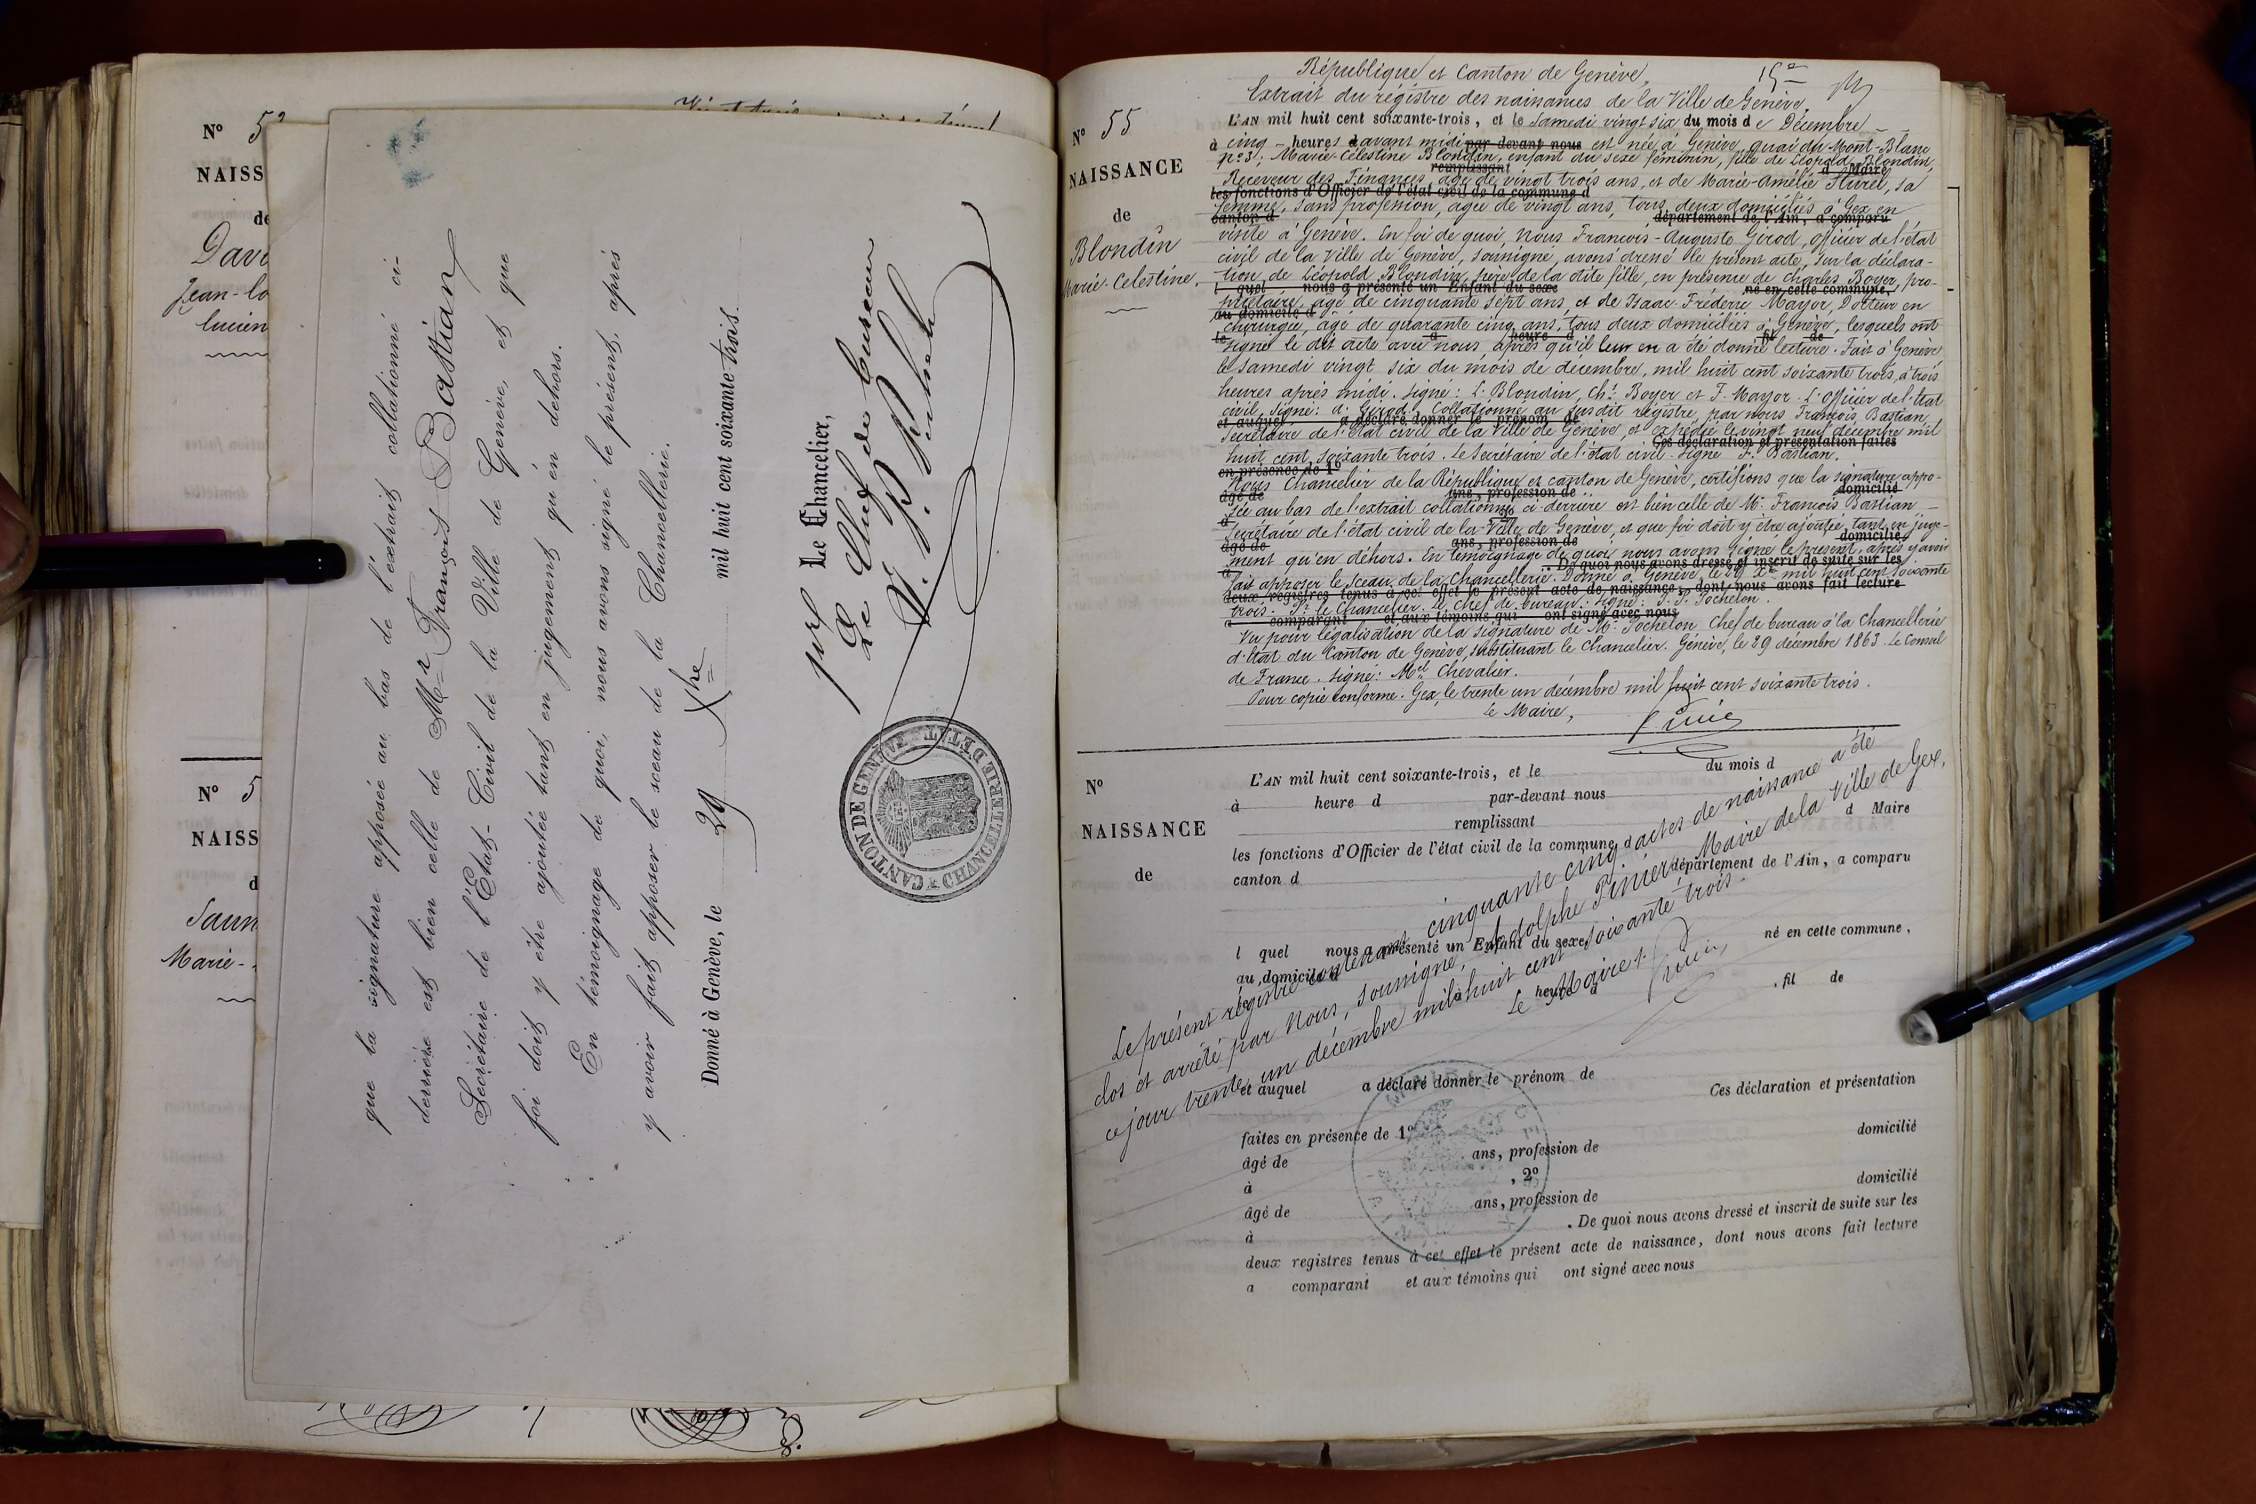 N° 5
NAISS
de
Davi
Jean-Lo
Lucien
N° 5
NAISS
d
Marie-
que la signature apposée au bas de l'extrait collationné ci-
derrière est bien celle de Mr François Bastian
Secrétaire de l'Etat-Civil de la Ville de Genève, et que
foi doit y être ajoutée tant en jugement qu'en dehors.
En témoignage de quoi, nous avons signé le présent, après
y avoir fait apposer le sceau de la Chancellerie.
Donné à Genève, le 29 Xbre mil huit cent soixante trois
Le Chancelier,
pr le
Le Chef de bureau
CANTON DE GENÈVE
CHANCELLERIE D'ÉTAT
15e
République et Canton de Genève.
Extrait du régistre des naissances de la Ville de Genève.
N° 55
NAISSANCE
de
Blondin
Marie-Celestine.
L'AN mil huit cent soixante-trois, et le Samedi vingt six du mois de Décembre
à cinq heures d'avant midi par-devant nous est née à Genève, quai du Mont-Blanc
n° 3, Marie-Célestine Blondin, enfant du sexe féminin, fille de Léopold Blondin,
remplissant d Maire
Receveur des Finances, âgé de vingt trois ans, et de Marie-Amélie Hurel, sa
les fonctions d'Officier de l'état civil de la commune d
femme, sans profession, âgée de vingt ans, tous deux domiciliés à Gex en
canton d département de l'Ain, a comparu
visite à Genève. En foi de quoi, Nous François-Auguste Girod, officier de l'état
civil de la Ville de Genève, soussigné, avons dressé le présent acte, sur la déclara-
tion de Léopold Blondin, père de la dite fille, en présence de Charles Boyer, pro-
l quel nous a présenté un Enfant du sexe né en cette commune,
priétaire, âgé de cinquante sept ans, et de Isaac Frédéric Mayor, Docteur en
au domicile d
chirurgie, âgé de quarante cinq ans, tous deux domiciliés à Genève, lesquels ont
le à heure d fil de
signé le dit acte avec nous après qu'il leur en a été donné lecture. Fait à Genève
le samedi vingt six du mois de décembre, mil huit cent soixante trois, à trois
heures après midi. Signé: L. Blondin, Ch. Boyer et F. Mayor. L'officier de l'état
civil, Signé: A. Girod. Collationné au susdit régistre, par nous François Bastian,
et auquel a déclaré donner le prénom de
Secrétaire de l'état civil de la Ville de Genève, et expédié le vingt neuf décembre mil
Ces déclaration et présentation faites
huit cent soixante trois. Le Secrétaire de l'état civil. Signé F. Bastian.
en présence de 1°
Nous Chancelier de la République et canton de Genève, certifions que la signature appo-
âgé de ans, profession de domicilié
sée au bas de l'extrait collationné ci derrière est bien celle de Mr François Bastian
à 2°
Secrétaire de l'état civil de la Ville de Genève, et que foi doit y être ajoutée, tant en juge-
âgé de ans, profession de domicilié
ment qu'en déhors. En témoignage de quoi nous avons signé le présent, après y avoir
à . De quoi nous avons dressé et inscrit de suite sur les
fait apposer le sceau de la Chancellerie. Donné à Genève, le 29 Xbre mil huit cent soixante
deux registres tenus à cet effet le présent acte de naissance, dont nous avons fait lecture
trois. Pr le Chancelier. Le chef de bureau: Signé: J. P. Pochelon.
a comparant et aux témoins qui ont signé avec nous
Vu pour légalisation de la signature de Mr Pochelon Chef de bureau à la Chancellérie
d'état du Canton de Genève, substituant le Chancelier. Genève, le 29 décembre 1863. Le Consul
de France. Signé: Mel Chevalier.
Pour copie conforme. Gex, le trente un décembre mil huit cent soixante trois.
Le Maire,
N°
NAISSANCE
de
L'AN mil huit cent soixante-trois, et le du mois d
à heure d par-devant nous
remplissant d Maire
les fonctions d'Officier de l'état civil de la commune d
canton d département de l'Ain, a comparu
l quel nous a présenté un Enfant du sexe né en cette commune,
au domicile d
le à heure d , fil de
et auquel a déclaré donner le prénom de Ces déclaration et présentation
faites en présence de 1° domicilié
âgé de ans, profession de
à , 2° domicilié
âgé de ans, profession de
à . De quoi nous avons dressé et inscrit de suite sur les
deux registres tenus à cet effet le présent acte de naissance, dont nous avons fait lecture
a comparant et aux témoins qui ont signé avec nous
Le présent régistre contenant cinquante cinq actes de naissance a été
clos et arrêté par Nous, soussigné, Adolphe Pinier Maire de la Ville de Gex,
ce jour trente un décembre mil huit cent soixante trois.
Le Maire.